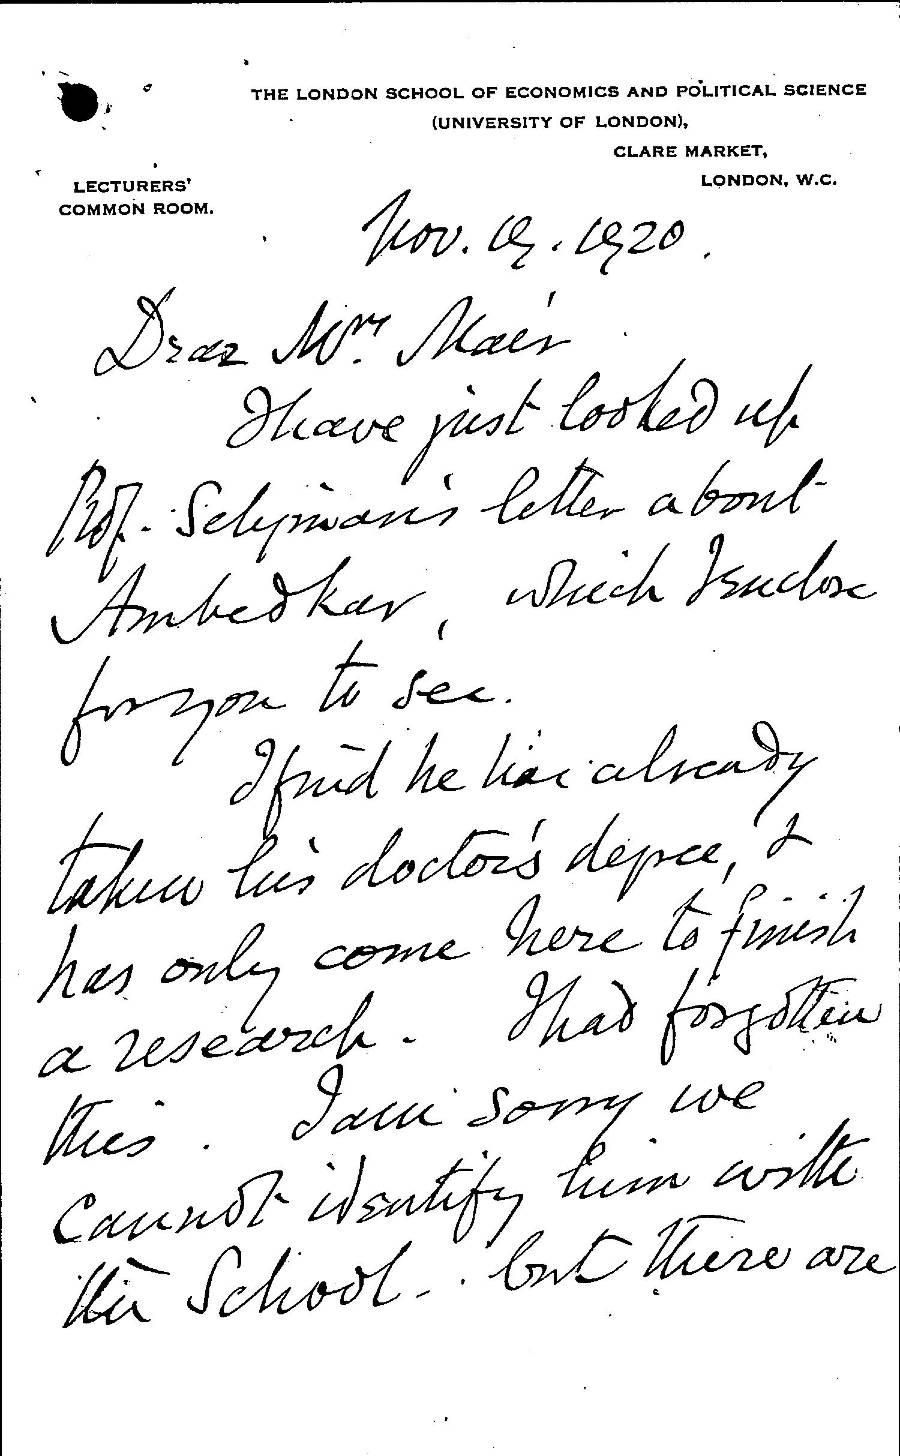 THE LONDON SCHOOL OF ECONOMICS AND POLITICAL SCIENCE
(UNIVERSITY OF LONDON),
CLARE MARKET,
LONDON, W.C.
LECTURERS'
COMMON ROOM.
Nov. 19. 1920.
Dear Mrs. Mair
I have just looked up
Prof. Seligman's letter about
Ambedkar, which I enclose
for you to see.
I find he has already
taken his doctor's degree, &
has only come here to finish
a research. I had forgotten
this. I am sorry we
cannot identify him with
the School - but there are